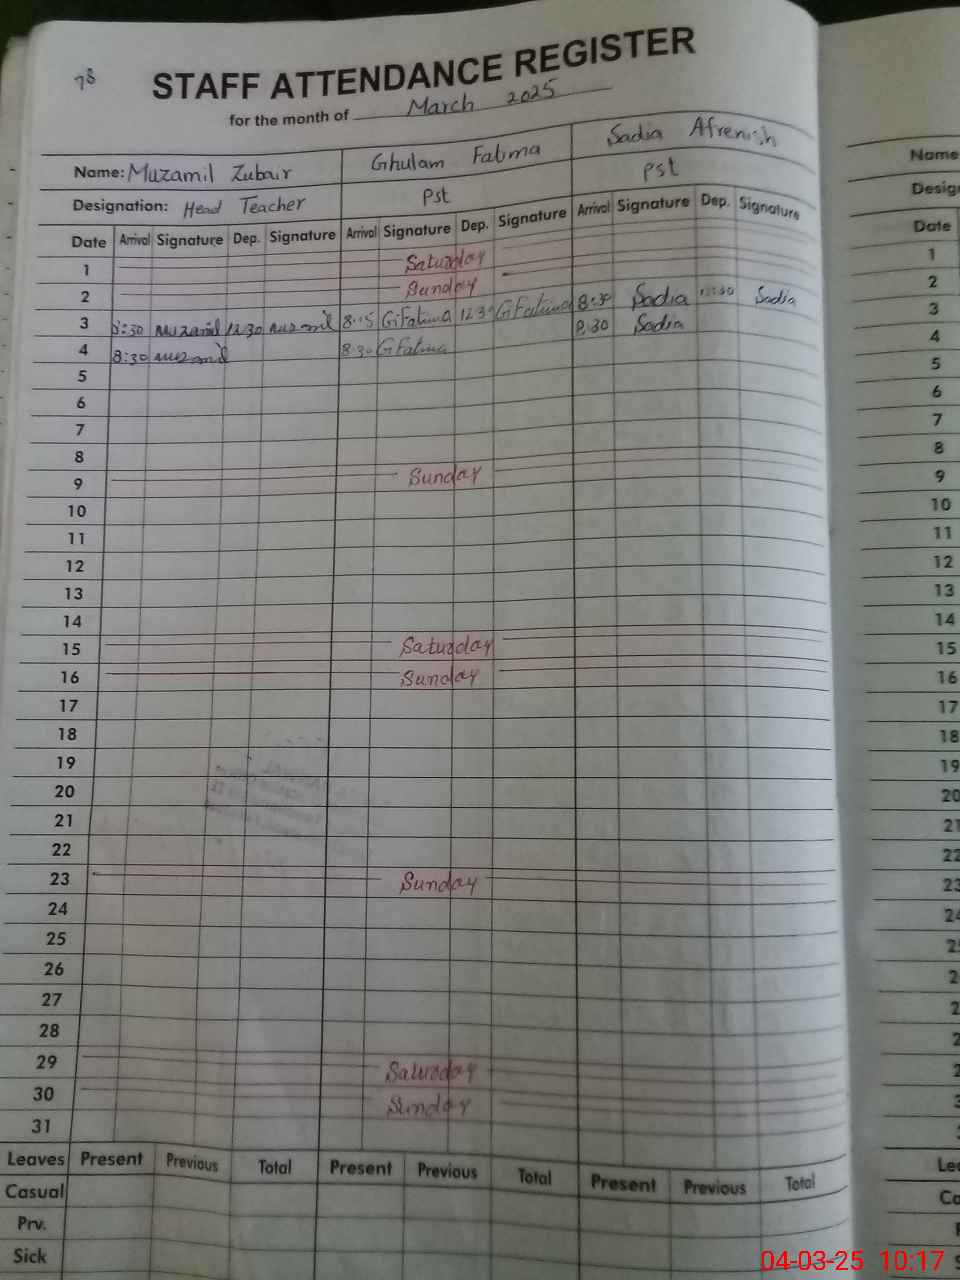 78
STAFF ATTENDANCE REGISTER
for the month of March 2025
Name: Muzamil Zubair Ghulam Fatima Sadia Afrenish
Designation: Head Teacher Pst Pst
Date Arrival Signature Dep. Signature Arrival Signature Dep. Signature Arrival Signature Dep. Signature
1 Saturday
2 Sunday
3 8:30 muzamil 12:30 muzamil G Fatima 12:30 G Fatima 8:30 Sadia Sadia
4 8:30 muzamil 8:30 G Fatima 8:30 Sadia
5
6
7
8
9 Sunday
10
11
12
13
14
15 Saturday
16 Sunday
17
18
19
20
21
22
23 Sunday
24
25
26
27
28
29 Saturday
30 Sunday
31
Leaves Present Previous Total Present Previous Total Present Previous Total
Casual
Prv.
Sick
Name
Date
1
2
3
4
5
6
7
8
9
10
11
12
13
14
15
16
17
18
19
20
04-03-25 10:17